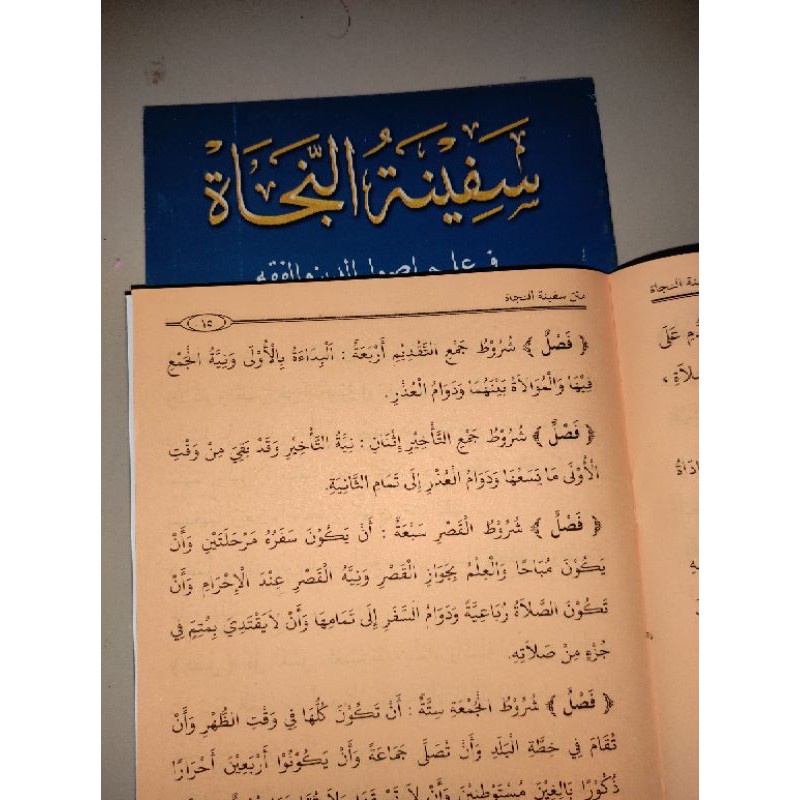 سَفِينَةُ النَّجَاةِ
في علم اصول الدين والفقه
متن سفينة النجاة
١٥
﴿ فَصْلٌ ﴾ شُرُوْطُ جَمْعِ التَّقْدِيْمِ أَرْبَعَةٌ : اَلْبِدَاءَةُ بِالْأُوْلَى وَنِيَّةُ الْجَمْعِ
فِيْهَا وَالْمُوَالَاةُ بَيْنَهُمَا وَدَوَامُ الْعُذْرِ .
﴿ فَصْلٌ ﴾ شُرُوْطُ جَمْعِ التَّأْخِيْرِ إِثْنَانِ : نِيَّةُ التَّأْخِيْرِ وَقَدْ بَقِيَ مِنْ وَقْتِ
الْأُوْلَى مَا يَسَعُهَا وَدَوَامُ الْعُذْرِ إِلَى تَمَامِ الثَّانِيَةِ.
﴿ فَصْلٌ ﴾ شُرُوْطُ الْقَصْرِ سَبْعَةٌ : أَنْ يَكُوْنَ سَفَرُهُ مَرْحَلَتَيْنِ وَأَنْ
يَكُوْنَ مُبَاحًا وَالْعِلْمُ بِجَوَازِ الْقَصْرِ وَنِيَّةُ الْقَصْرِ عِنْدَ الْإِحْرَامِ وَأَنْ
تَكُوْنَ الصَّلَاةُ رُبَاعِيَّةً وَدَوَامُ السَّفَرِ إِلَى تَمَامِهَا وَأَنْ لَا يَقْتَدِيَ بِمُتِمٍّ فِي
جُزْءٍ مِنْ صَلَاتِهِ.
﴿ فَصْلٌ ﴾ شُرُوْطُ الْجُمْعَةِ سِتَّةٌ : أَنْ تَكُوْنَ كُلُّهَا فِي وَقْتِ الظُّهْرِ وَأَنْ
تُقَامَ فِي خِطَّةِ الْبَلَدِ وَأَنْ تُصَلَّى جَمَاعَةً وَأَنْ يَكُوْنُوْا أَرْبَعِيْنَ أَحْرَارًا
ذُكُوْرًا بَالِغِيْنَ مُسْتَوْطِنِيْنَ وَأَنْ لَا